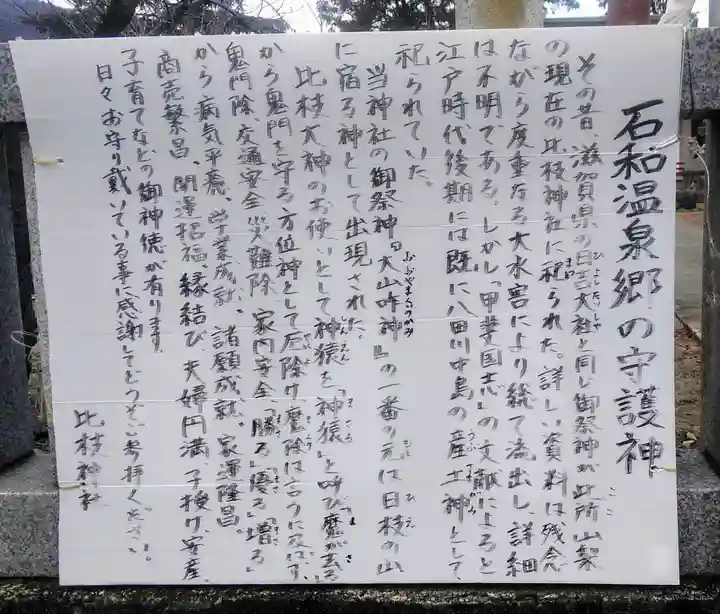 石和温泉郷の守護神
その昔、滋賀県の日吉大社と同じ御祭神が此所山梨
の現在の比枝神社に祀られた。詳しい資料は残念
ながら度重なる大水害により総て流出し、詳細
は不明である。しかし「甲斐国志」の文献によると
江戸時代後期には既に八田川中島の産土神として、
祀られていた。
当神社の御祭神『大山咋神』の一番の元は日枝の山
に宿る神として出現された。
比枝大神のお使いとして神猿を「神猿」と呼び「魔が去る」
から鬼門を守る方位神として厄除け魔除は言うに及ばず、
鬼門除、交通安全、災難除、家内安全、「勝る」「優る」「増る」
から病気平癒、学業成就、諸願成就、家運隆昌。
商売繁昌、開運招福、縁結び、夫婦円満、子授け、安産、
子育てなどの御神徳が有ります。
日々お守り戴いている事に感謝してどうぞご参拝ください。
比枝神社